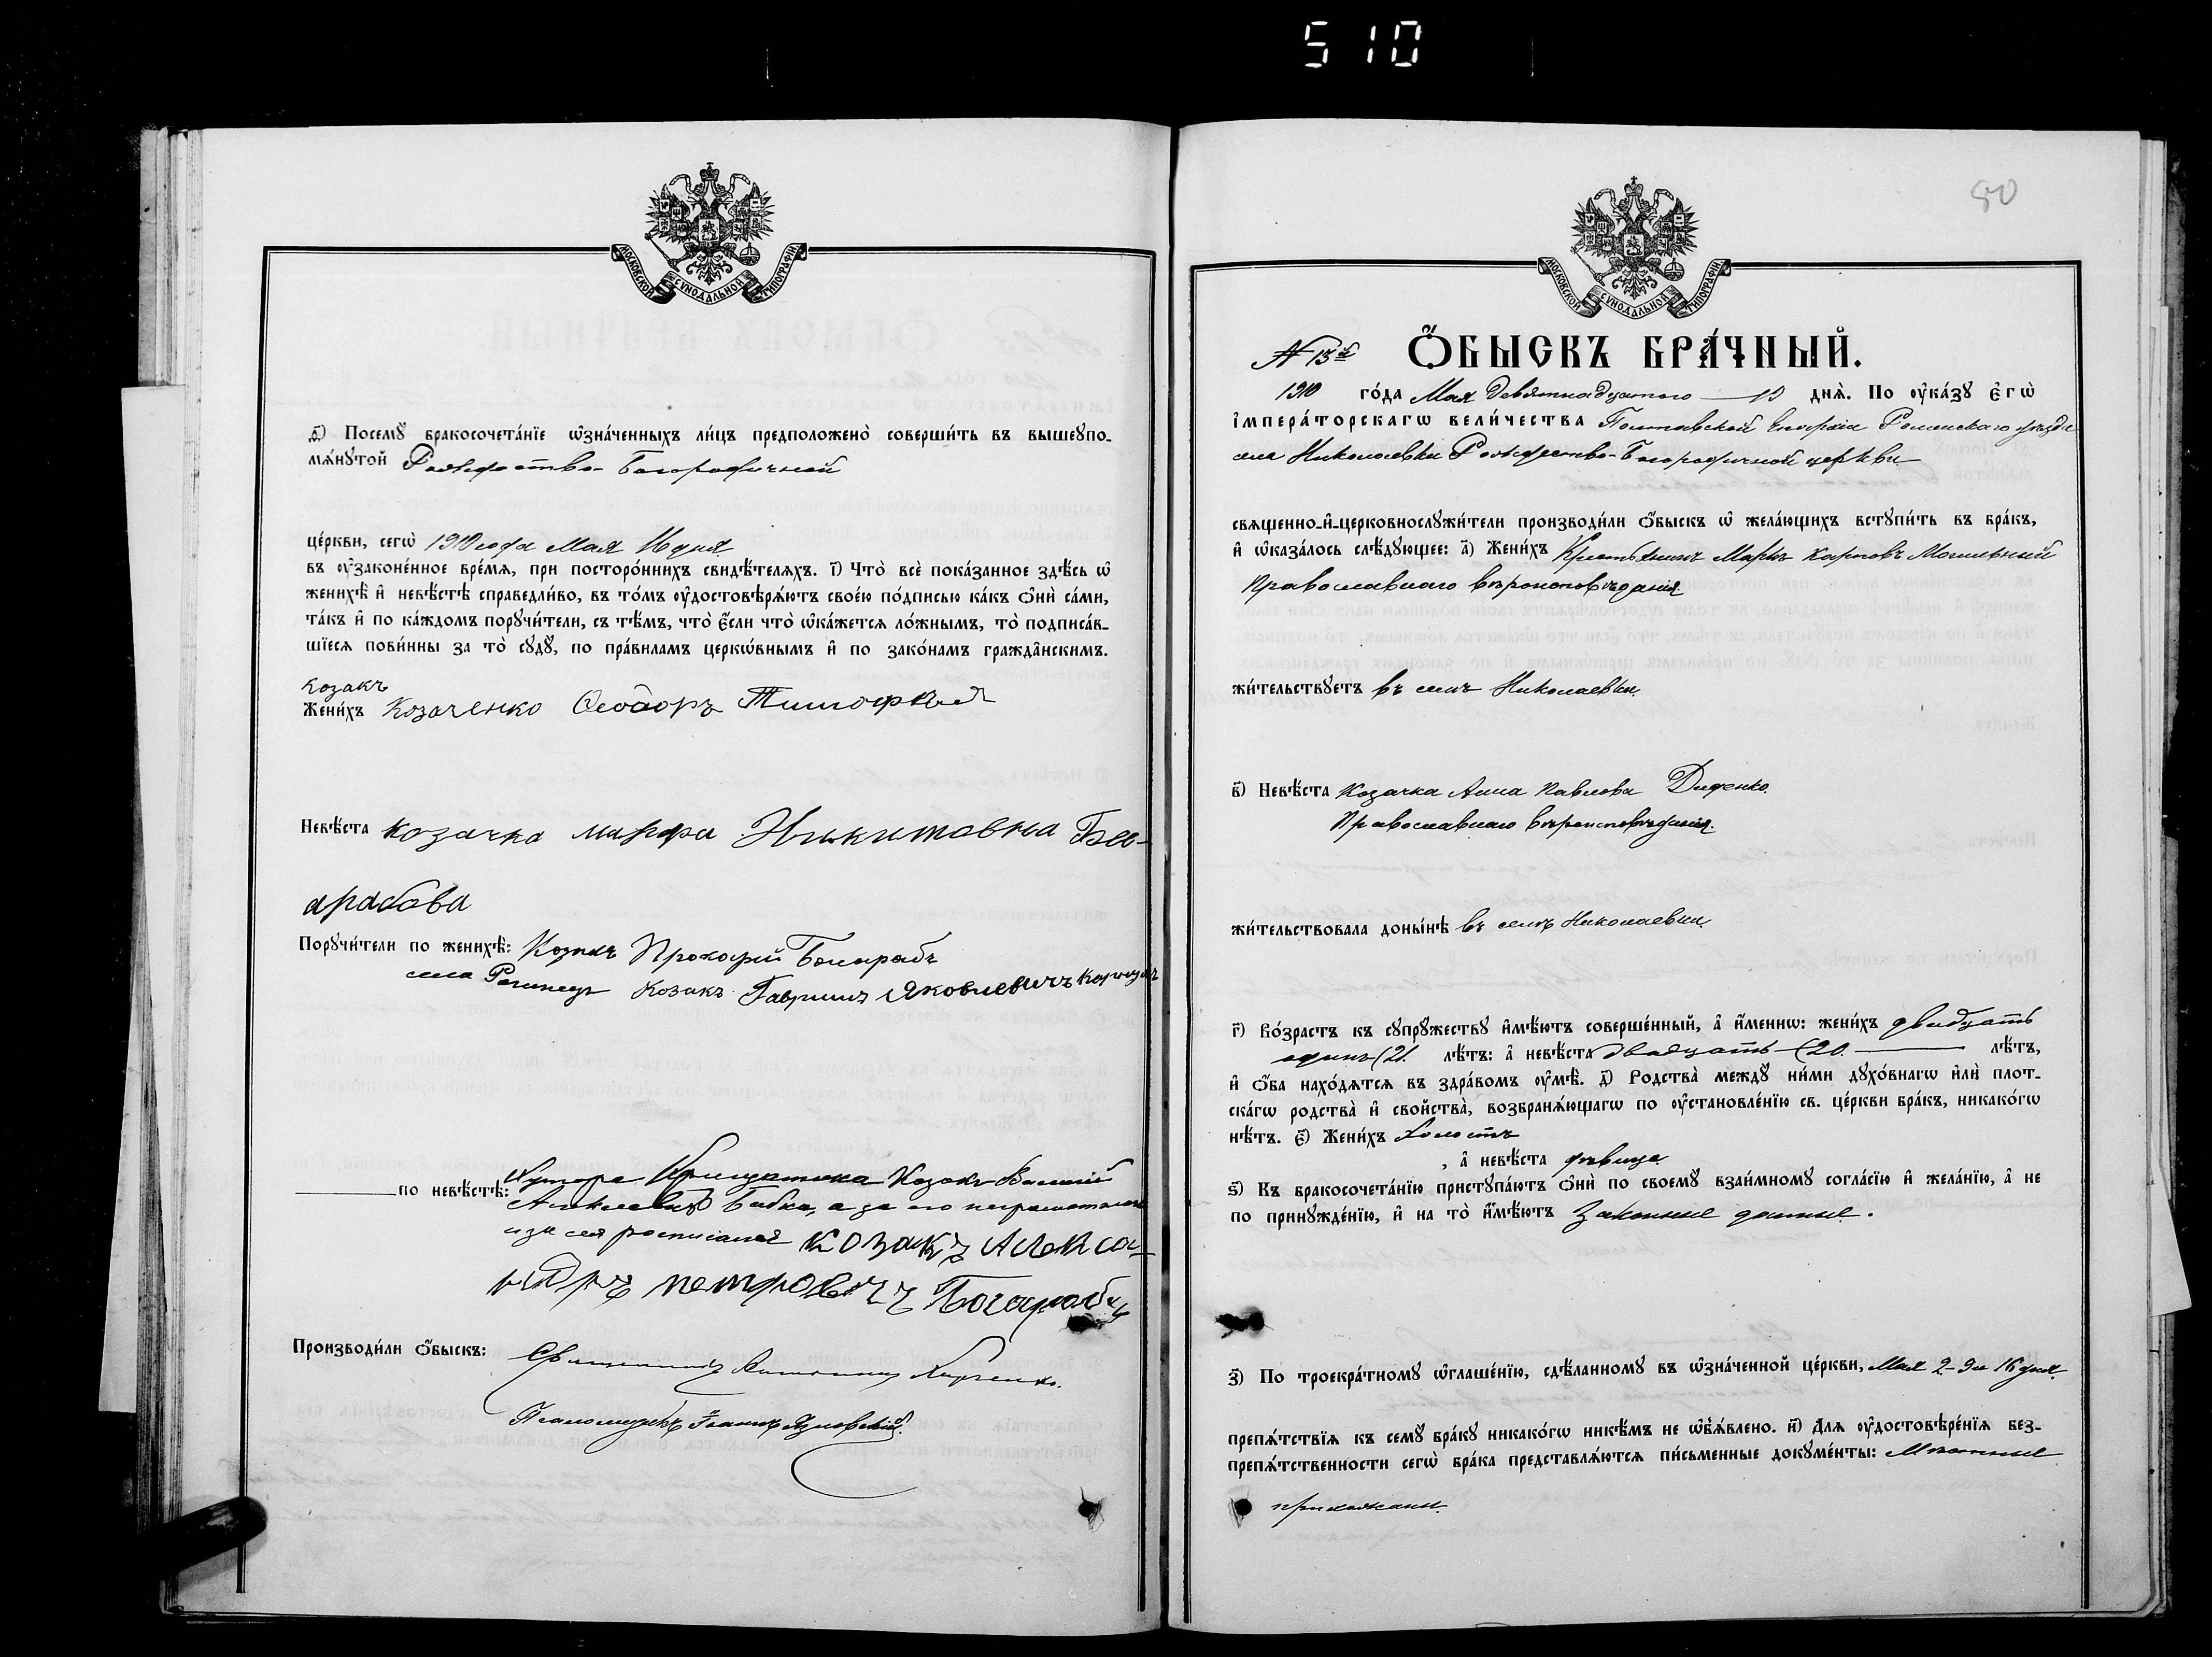 510
МОСКОВСКОЙ СѴНОДАЛЬНОЙ ТИПОГРАФІИ
ѳ҃) Посемꙋ̀ бракосочета́нїе ѡ҆зна́ченныхъ ли́цъ предположено̀ соверши́ть въ вышеꙋпо-
мѧ́нꙋтой Рождество-Богородичной
це́ркви, сегѡ̀ 1910 года Мая 16 дня
въ ᲂу҆законе́нное вре́мѧ, при посторо́ннихъ свидѣ́телѧхъ. і҃) Что̀ всѐ пока́занное здѣ́сь ѡ҆
женихѣ̀ и҆ невѣ́стѣ справедли́во, въ то́мъ ᲂу҆достовѣрѧ́ютъ свое́ю по́дписью ка́къ ѻ҆нѝ са́ми,
та́къ и҆ по ка́ждомъ порꙋчи́тели, съ тѣ́мъ, что̀ є҆́сли что̀ ѡ҆ка́жетсѧ ло́жнымъ, то̀ подписа́в-
шїесѧ пови́нны за то̀ сꙋдꙋ̀, по пра́виламъ церко́внымъ и҆ по зако́намъ гражда́нскимъ.
Козакъ
Жени́хъ Козаченко Ѳеодоръ Тимофѣев
Невѣ́ста козачка марфа Никитовна Бо-
арабова
Порꙋчи́тели по женихѣ̀: Козакъ Прокофий Богарабъ
села Рогинецъ Козакъ Гавриилъ Яковлевичъ
по невѣ́стѣ: Хутора Козакъ Василий
Алексеевичъ Бабка, а за его неграмотного
росписался козакъ Алекса-
ндръ петровичъ Богарабъ
Производи́ли ѻ҆́быскъ: Священникъ
Псаломщикъ Іоаннъ
50
МОСКОВСКОЙ СѴНОДАЛЬНОЙ ТИПОГРАФІИ
№ 13й ѺБЫСКЪ БРА́ЧНЫЙ.
1910 го́да Мая девятнадцатого — 19 днѧ̀. По ᲂу҆ка́зꙋ є҆гѡ̀
і҆мпера́торскагѡ вели́чества Полтавской Епархіи Роменскаго уезда
села Николаевки Рождество-Богородичной церкви
свѧщенно-и҆-церковнослꙋжи́тели производи́ли ѻ҆́быскъ ѡ҆ жела́ющихъ встꙋпи́ть въ бра́къ,
и҆ ѡ҆каза́лось слѣ́дꙋющее: а҃) Жени́хъ Крестьянинъ Маркъ Карповъ Могильный
Православнаго вѣроисповѣданія
жи́тельствꙋетъ въ селѣ Николаевки
в҃) Невѣ́ста Козачка Анна Павлова Диденко.
Православнаго вѣроисповѣданія.
жи́тельствовала доны́нѣ въ селѣ Николаевки
г҃) Во́зрастъ къ сꙋпрꙋ́жествꙋ и҆мѣ́ютъ соверше́нный, а҆ и҆́меннѡ: жени́хъ двадцать
одинъ (21. лѣ́тъ: а҆ невѣ́ста двадцать (20. лѣ́тъ,
и҆ ѻ҆́ба нахо́дѧтсѧ въ здра́вомъ ᲂу҆мѣ̀. д҃) Родства̀ междꙋ̀ ни́ми дꙋхо́внагѡ и҆лѝ плот-
ска́гѡ родства̀ и҆ свойства̀, возбранѧ́ющагѡ по ᲂу҆становле́нїю св. це́ркви бра́къ, никако́гѡ
нѣ́тъ. є҃) Жени́хъ Холостъ
, а҆ невѣ́ста дѣвица.
ѕ҃) Къ бракосочета́нїю пристꙋпа́ютъ ѻ҆нѝ по своемꙋ̀ взаи́мномꙋ согла́сїю и҆ жела́нїю, а҆ не
по принꙋжде́нїю, и҆ на то̀ и҆мѣ́ютъ Законные данные.
з҃) По троекра́тномꙋ ѡ҆глаше́нїю, сдѣ́ланномꙋ въ ѡ҆зна́ченной це́ркви, Мая 2-9 и 16 дня.
препѧ́тствїѧ къ семꙋ̀ бра́кꙋ никако́гѡ никѣ́мъ не ѡ҆б̾ѧ́влено. и҃) Длѧ ᲂу҆достовѣре́нїѧ без-
препѧ́тственности сегѡ̀ бра́ка представлѧ́ютсѧ пи́сьменные докꙋме́нты: Местные
прихожани.